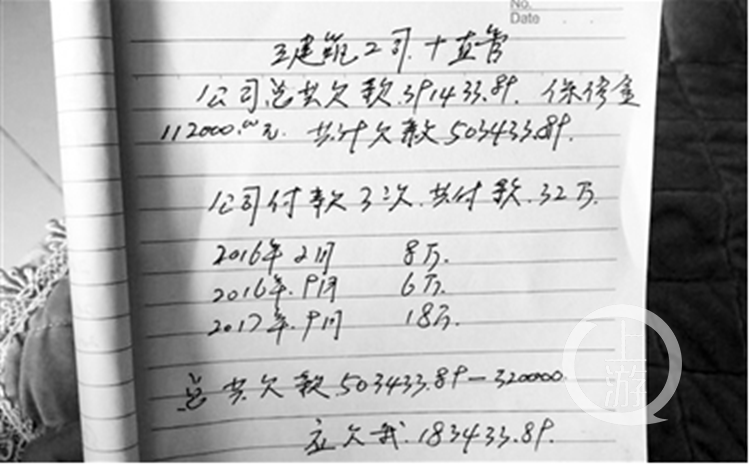 No.
Date
五建筑工司.十直管
公司总共欠款.391433.89. 保修金
112000.00元. 共计欠款503433.89.
公司付款3次.共付款.32万.
2016年2月 8万.
2016年.9月 6万.
2017年.9月 18万.
总共欠款.503433.89-320000.
应欠我.183433.89.
上游